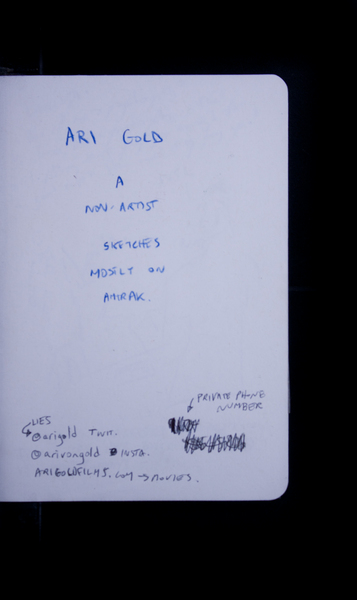 ARI GOLD
A
NON-ARTIST
SKETCHES
MOSTLY ON
AMTRAK.
PRIVATE PHONE
NUMBER
LIES
@arigold TWIT.
@arivongold INSTA.
ARIGOLDFILMS.COM → MOVIES.